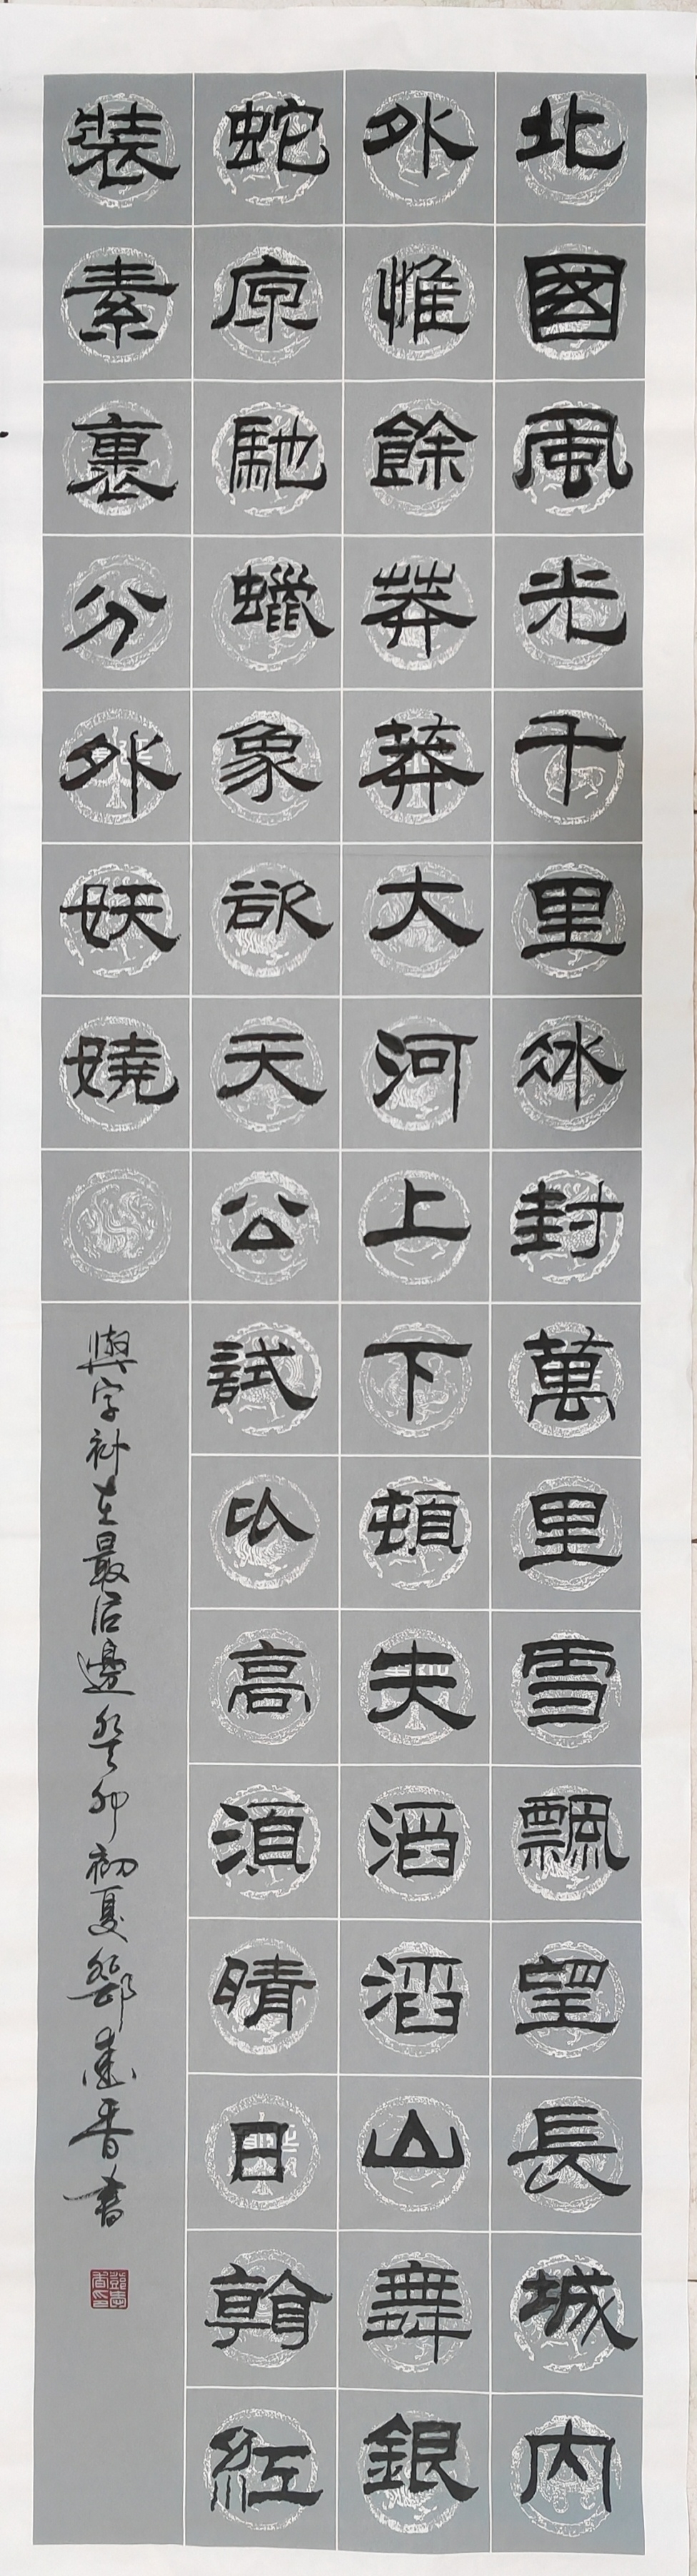 北國風光千里冰封萬里雪飄望長城内
外惟餘莽莽大河上下頓失滔滔山舞銀
蛇原馳蠟象欲天公試比高須晴日看紅
裝素裹分外妖嬈
與字補在最後邊癸卯初夏鄧惠香書